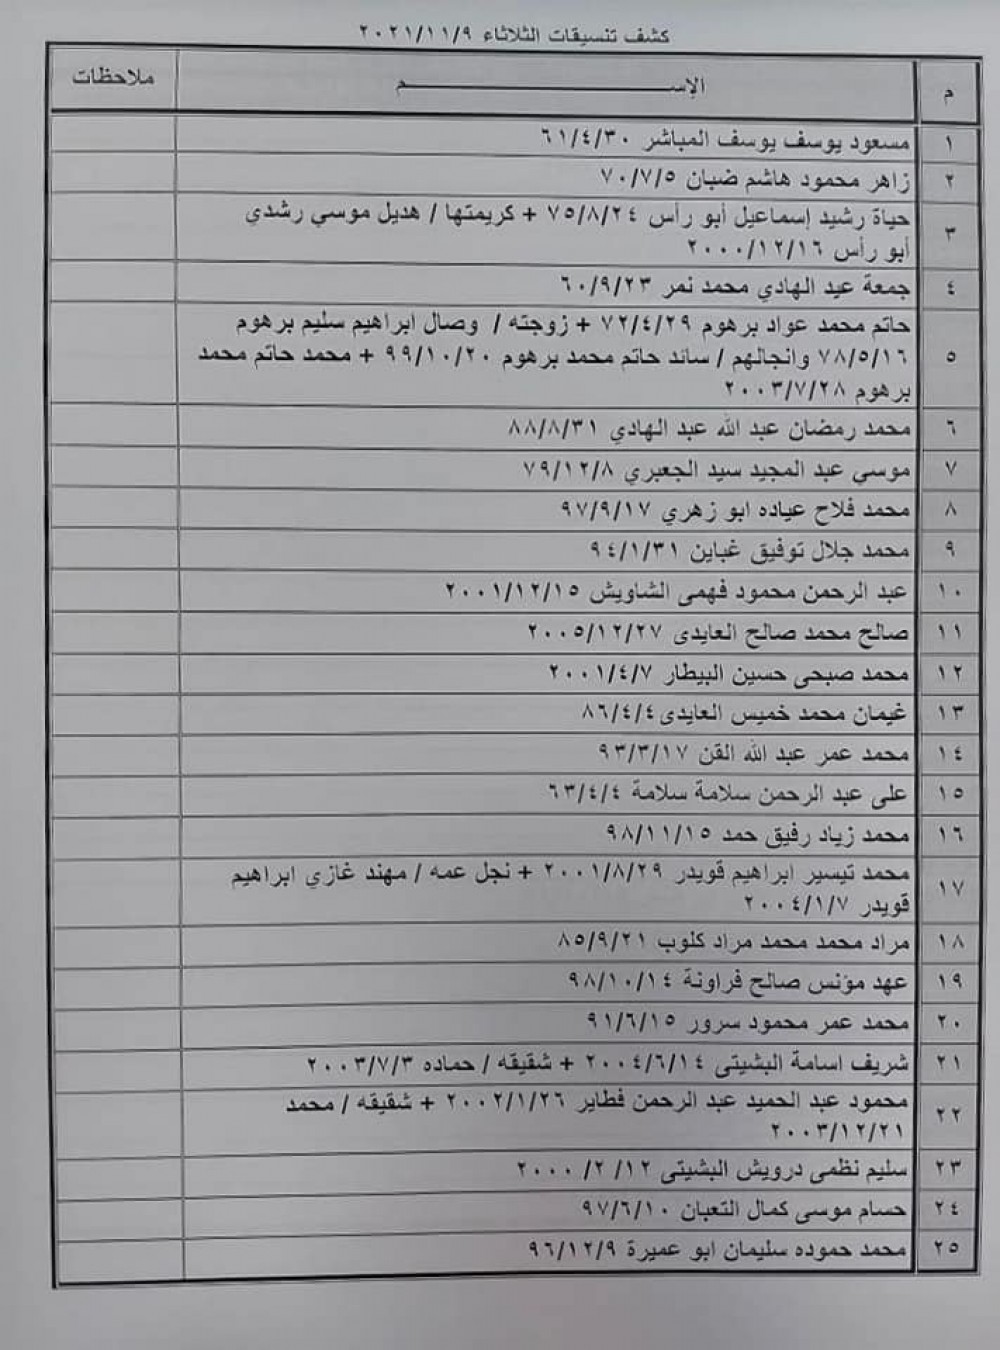 كشف تنسيقات الثلاثاء ٢٠٢١/١١/٩
م الإســـــــــــم ملاحظات
١ مسعود يوسف يوسف المباشر ٦١/٤/٣٠
٢ زاهر محمود هاشم ضبان ٧٠/٧/٥
٣ حياة رشيد إسماعيل أبو رأس ٧٥/٨/٢٤ + كريمتها / هديل موسي رشدي
أبو رأس ٢٠٠٠/١٢/١٦
٤ جمعة عيد الهادي محمد نمر ٦٠/٩/٢٣
٥ حاتم محمد عواد برهوم ٧٢/٤/٢٩ + زوجته / وصال ابراهيم سليم برهوم
٧٨/٥/١٦ وانجالهم / سائد حاتم محمد برهوم ٩٩/١٠/٢٠ + محمد حاتم محمد
برهوم ٢٠٠٣/٧/٢٨
٦ محمد رمضان عبد الله عبد الهادي ٨٨/٨/٣١
٧ موسي عبد المجيد سيد الجعبري ٧٩/١٢/٨
٨ محمد فلاح عياده ابو زهري ٩٧/٩/١٧
٩ محمد جلال توفيق غباين ٩٤/١/٣١
١٠ عبد الرحمن محمود فهمى الشاويش ٢٠٠١/١٢/١٥
١١ صالح محمد صالح العايدى ٢٠٠٥/١٢/٢٧
١٢ محمد صبحى حسين البيطار ٢٠٠١/٤/٧
١٣ غيمان محمد خميس العايدى ٨٦/٤/٤
١٤ محمد عمر عبد الله القن ٩٣/٣/١٧
١٥ على عبد الرحمن سلامة سلامة ٦٣/٤/٤
١٦ محمد زياد رفيق حمد ٩٨/١١/١٥
١٧ محمد تيسير ابراهيم قويدر ٢٠٠١/٨/٢٩ + نجل عمه / مهند غازي ابراهيم
قويدر ٢٠٠٤/١/٧
١٨ مراد محمد محمد مراد كلوب ٨٥/٩/٢١
١٩ عهد مؤنس صالح فراونة ٩٨/١٠/١٤
٢٠ محمد عمر محمود سرور ٩١/٦/١٥
٢١ شريف اسامة البشيتى ٢٠٠٤/٦/١٤ + شقيقه / حماده ٢٠٠٣/٧/٣
٢٢ محمود عبد الحميد عبد الرحمن فطاير ٢٠٠٢/١/٢٦ + شقيقه / محمد
٢٠٠٣/١٢/٢١
٢٣ سليم نظمى درويش البشيتى ١٢/ ٢/ ٢٠٠٠
٢٤ حسام موسى كمال التعبان ٩٧/٦/١٠
٢٥ محمد حموده سليمان ابو عميرة ٩٦/١٢/٩